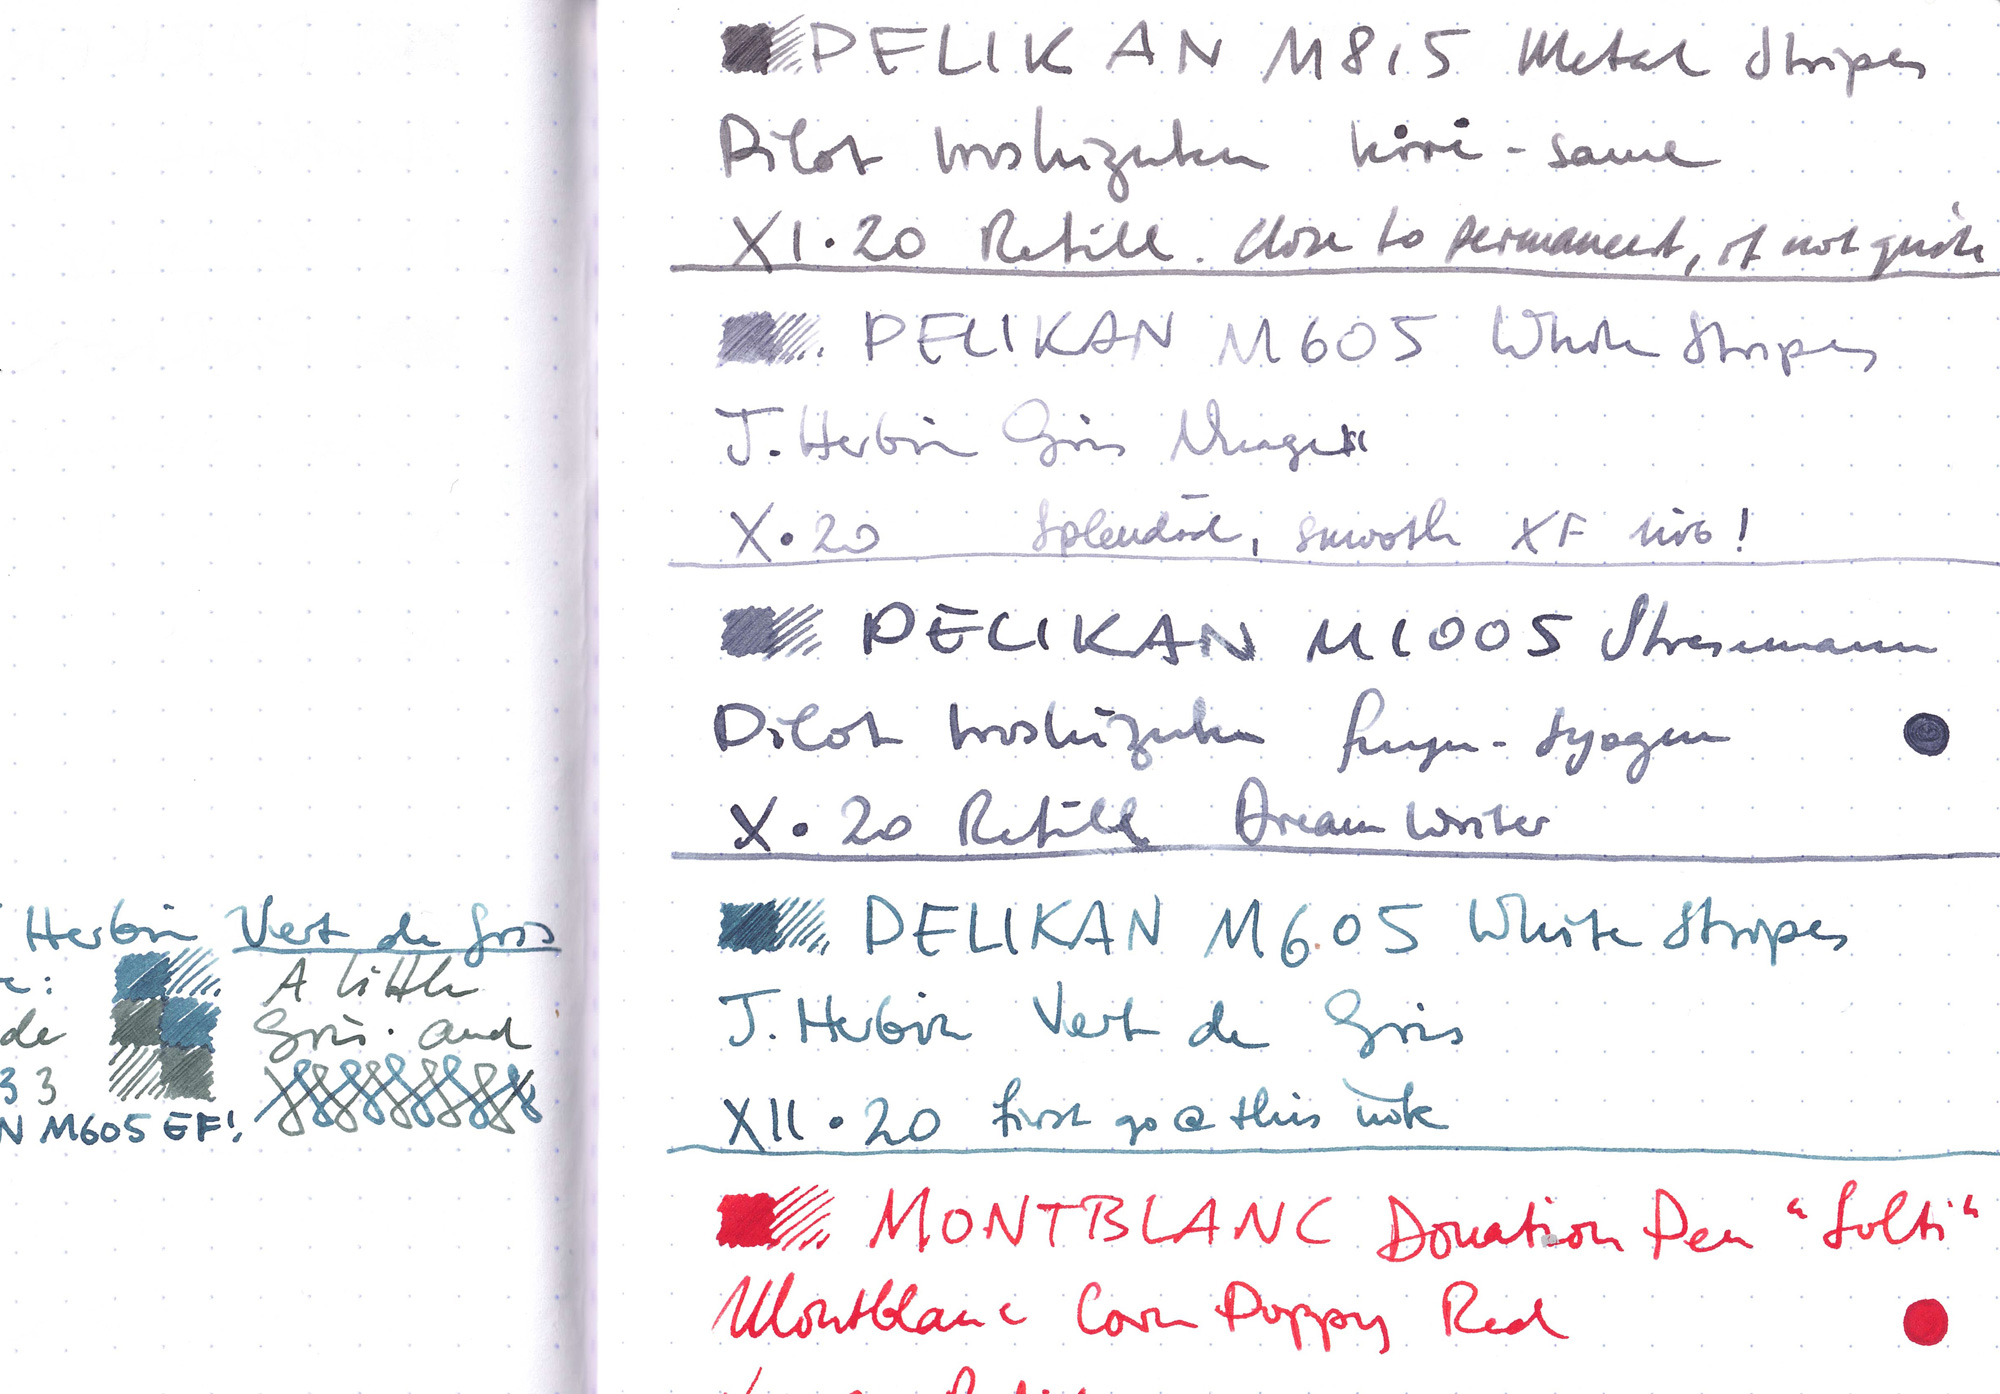 Herbin Vert de Gris
A little
de
Gris. and
33
N M605 EF!
PELIKAN M815 Metal Stripes
Pilot iroshizuku kiri-same
XI.20 Refill. Close to permanent, if not quite
PELIKAN M605 White Stripes
J. Herbin Gris Nuage
X.20 Splendid, smooth XF nib!
PELIKAN M1005 Stresemann
Pilot iroshizuku fuyu-syogun
X.20 Refill Dream Writer
PELIKAN M605 White Stripes
J. Herbin Vert de Gris
XII.20 First go @ this ink
MONTBLANC Donation Pen "Solti"
Montblanc Corn Poppy Red